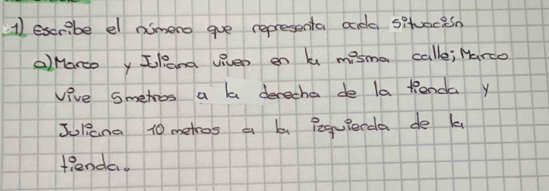 1) Escribe el número que representa cada situación
a) Marco y Juliana viven en la misma calle; Marco
vive 5 metros a la derecha de la tienda y
Juliana 10 metros a la izquierda de la
tienda.